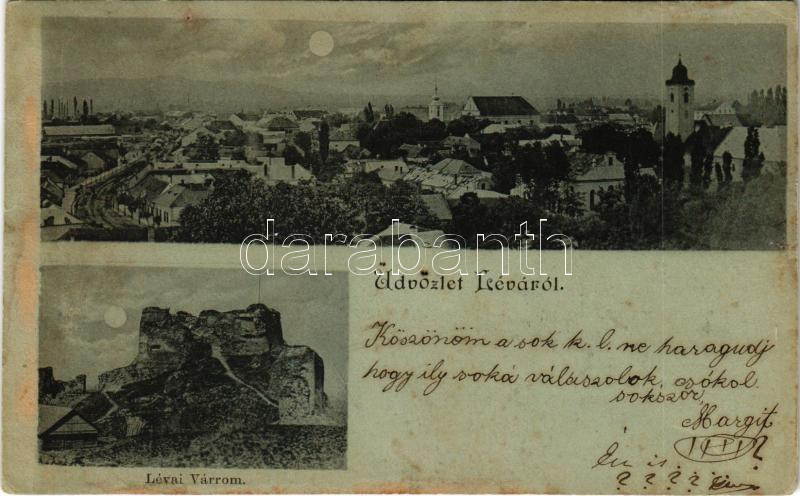 darabanth
Üdvözlet Léváról.
Köszönöm a sok k. l. ne haragudj
hogy ily soká válaszolok, csókol
sokszor,
Margit
Én is
? ? ? ?
Lévai Várrom.